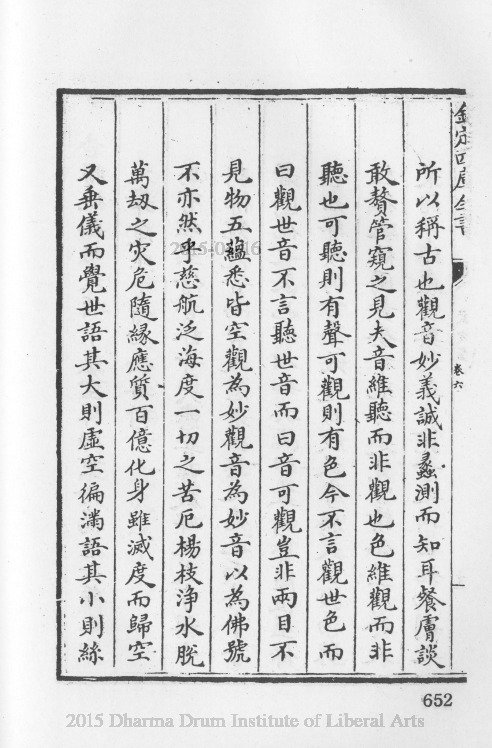 欽定四庫全書
卷六
所以稱古也觀音妙義誠非蠡測而知耳餐膚談
敢贅管窺之見夫音維聽而非觀也色維觀而非
聽也可聽則有聲可觀則有色今不言觀世色而
曰觀世音不言聽世音而曰音可觀豈非兩目不
見物五蘊悉皆空觀為妙觀音為妙音以為佛號
不亦然乎慈航泛海度一切之苦厄楊枝淨水脫
萬劫之灾危隨緣應質百億化身雖滅度而歸空
又垂儀而覺世語其大則虛空徧滿語其小則絲
652
2015 Dharma Drum Institute of Liberal Arts